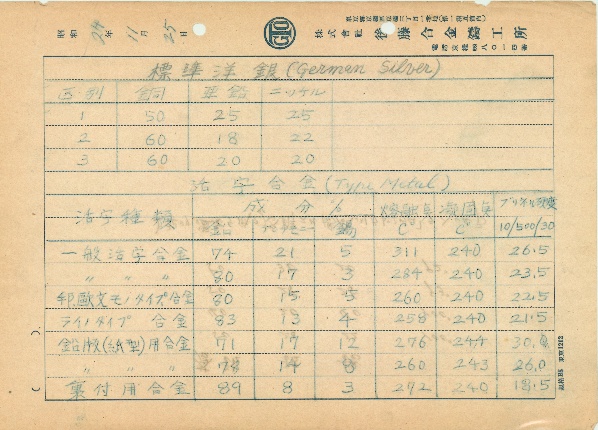 昭和 24年 11月 25日
GTO
株式會社 後藤合金鑄工所
標準洋銀 (German Silver)
区別 銅 亜鉛 ニッケル
1 50 25 25
2 60 18 22
3 60 20 20
活字合金 (Type Metal)
活字種類 成分% 熔融点 C° 凝固点 C° ブリネル硬度 10/500/30
鉛 アンチモニー 錫
一般活字合金 74 21 5 311 240 26.5
〃 〃 〃 80 17 3 284 240 23.5
印欧文モノタイプ合金 80 15 5 260 240 22.5
ライノタイプ 合金 83 13 4 258 240 21.5
鉛版(紙型)用合金 71 17 12 276 244
〃 〃 14 8 260 243 26.0
裏付用合金 89 8 3 272 240 18.5
規格B5 東京1212